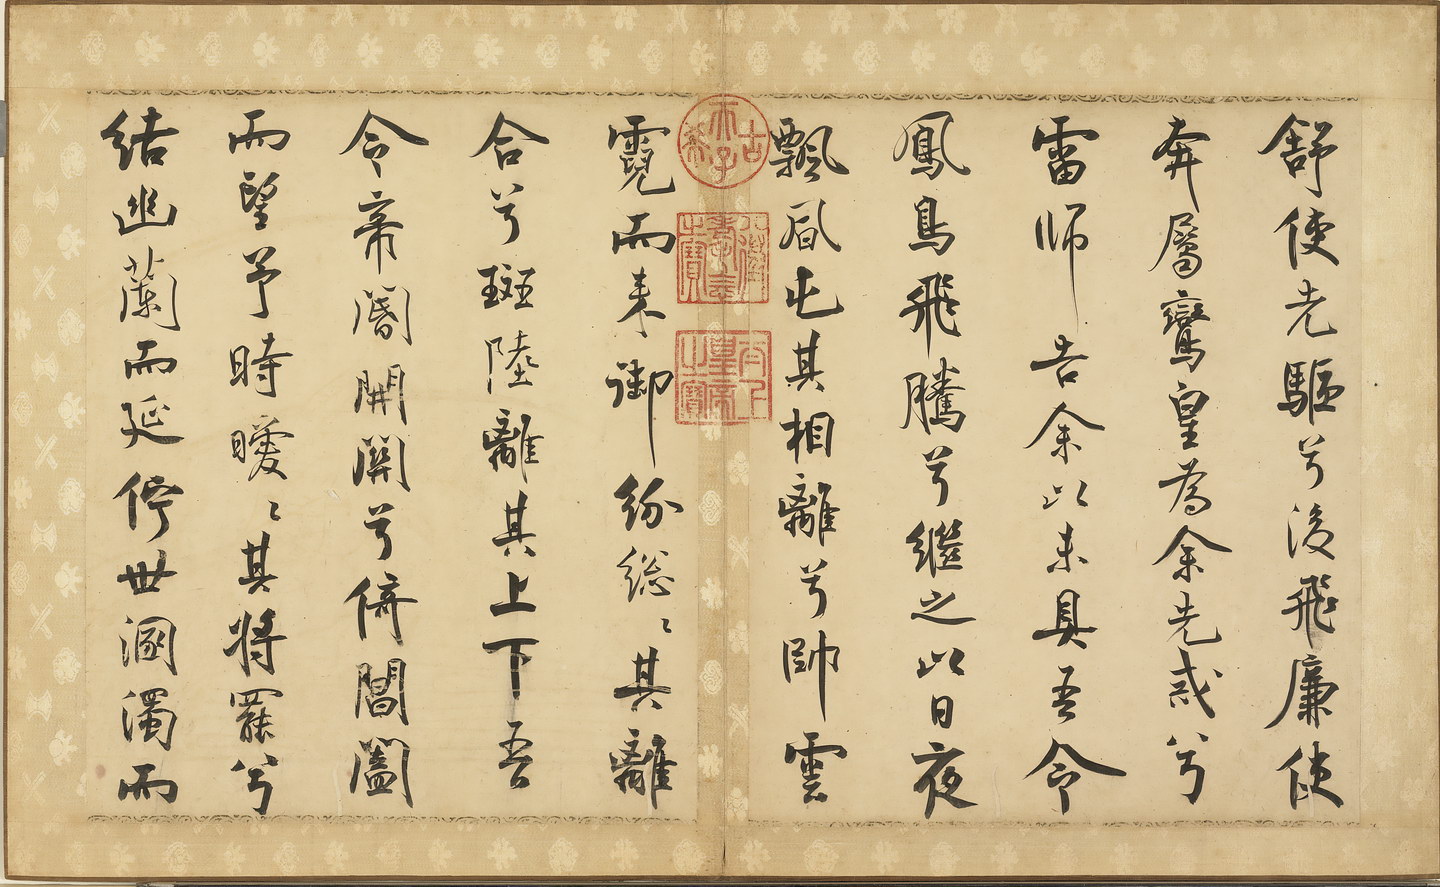 舒使先驅兮後飛廉使
奔屬鸞皇為余先戒兮
雷師告余以未具吾令
鳳鳥飛騰兮繼之以日夜
飄風屯其相離兮帥雲
霓而来御紛総〻其離
合兮斑陸離其上下吾
令帝閽開關兮倚閶闔
而望予時曖〻其將罷兮
結幽蘭而延佇世溷濁而
古希天子
八徵耄念之寶
太上皇帝之寶